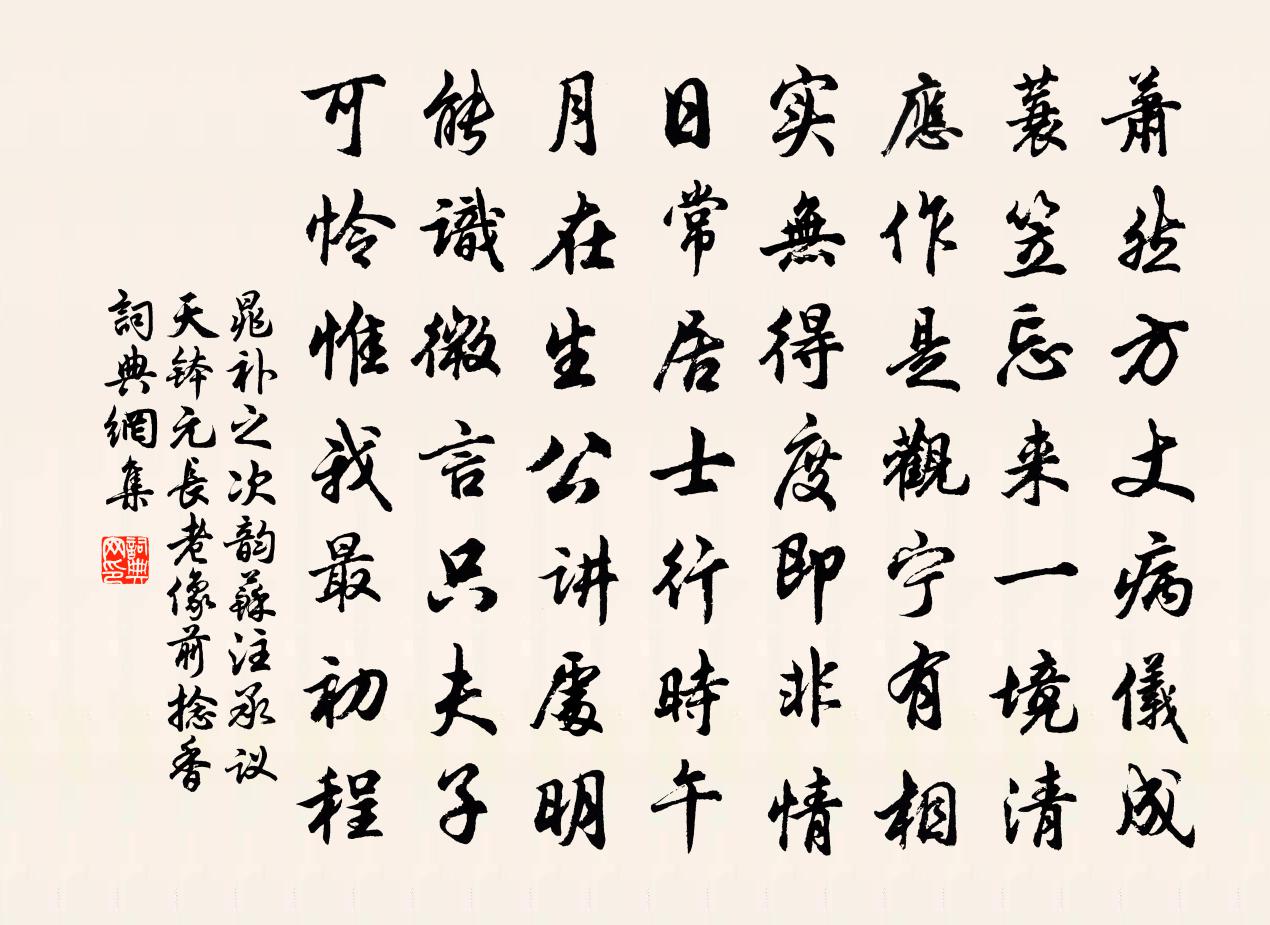 萧然方丈病儀成
蓑笠忘来一境清
應作是觀宁有相
实無得度即非情
日常居士行時午
月在生公讲處明
能識微言只夫子
可怜惟我最初程
晁补之次韵蘇注承议
天钵元長老像前捻香
詞典網集
詞典网印